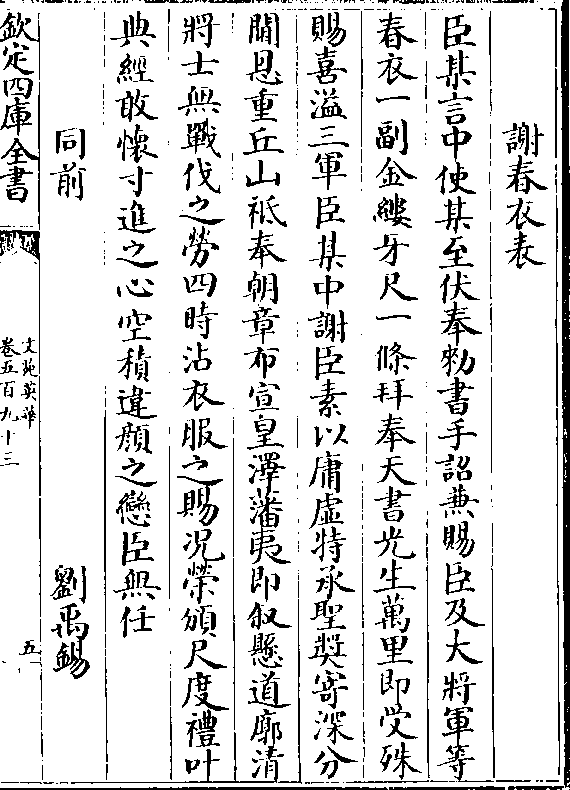 謝春衣表
臣某言中使某至伏奉勑書手詔兼賜臣及大將軍等
春衣一副金縷牙尺一條拜奉天書光生萬里即受殊
賜喜溢三軍臣某中謝臣素以庸虚特承聖奬寄深分
閫恩重丘山祗奉朝章布宣皇澤蕃夷即叙懸道廓清
將士無戰伐之勞四時沾衣服之賜况榮頒尺度禮叶
典經敢懷寸進之心空積違顔之戀臣無任
同前
劉禹錫
欽定四庫全書
文苑英華
卷五百九十三
五